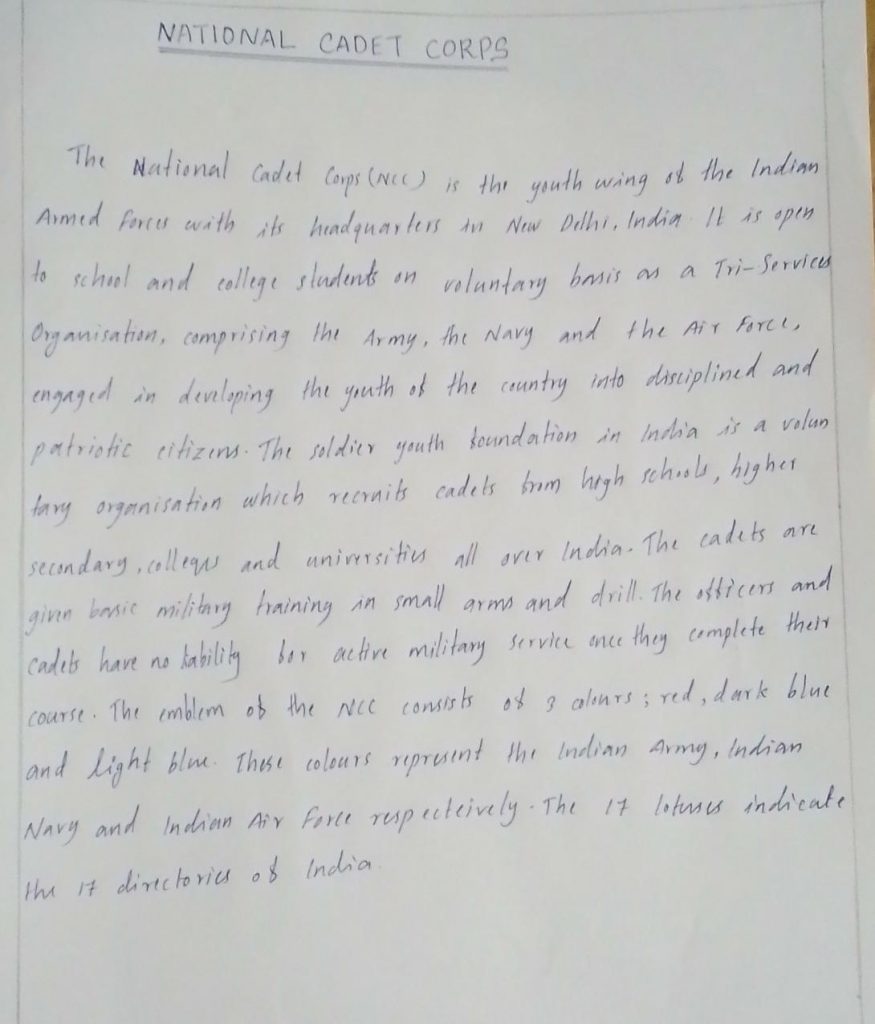 NATIONAL CADET CORPS
The National Cadet Corps (NCC) is the youth wing of the Indian
Armed Forces with its headquarters in New Delhi, India. It is open
to school and college students on voluntary basis as a Tri-Services
Organisation, comprising the Army, the Navy and the Air Force,
engaged in developing the youth of the country into disciplined and
patriotic citizens. The soldier youth foundation in India is a volun
tary organisation which recruits cadets from high schools, higher
secondary, colleges and universities all over India. The cadets are
given basic military training in small arms and drill. The officers and
cadets have no liability for active military service once they complete their
course. The emblem of the NCC consists of 3 colours; red, dark blue
and light blue. These colours represent the Indian Army, Indian
Navy and Indian Air Force respecteively. The 17 lotuses indicate
the 17 directories of India.